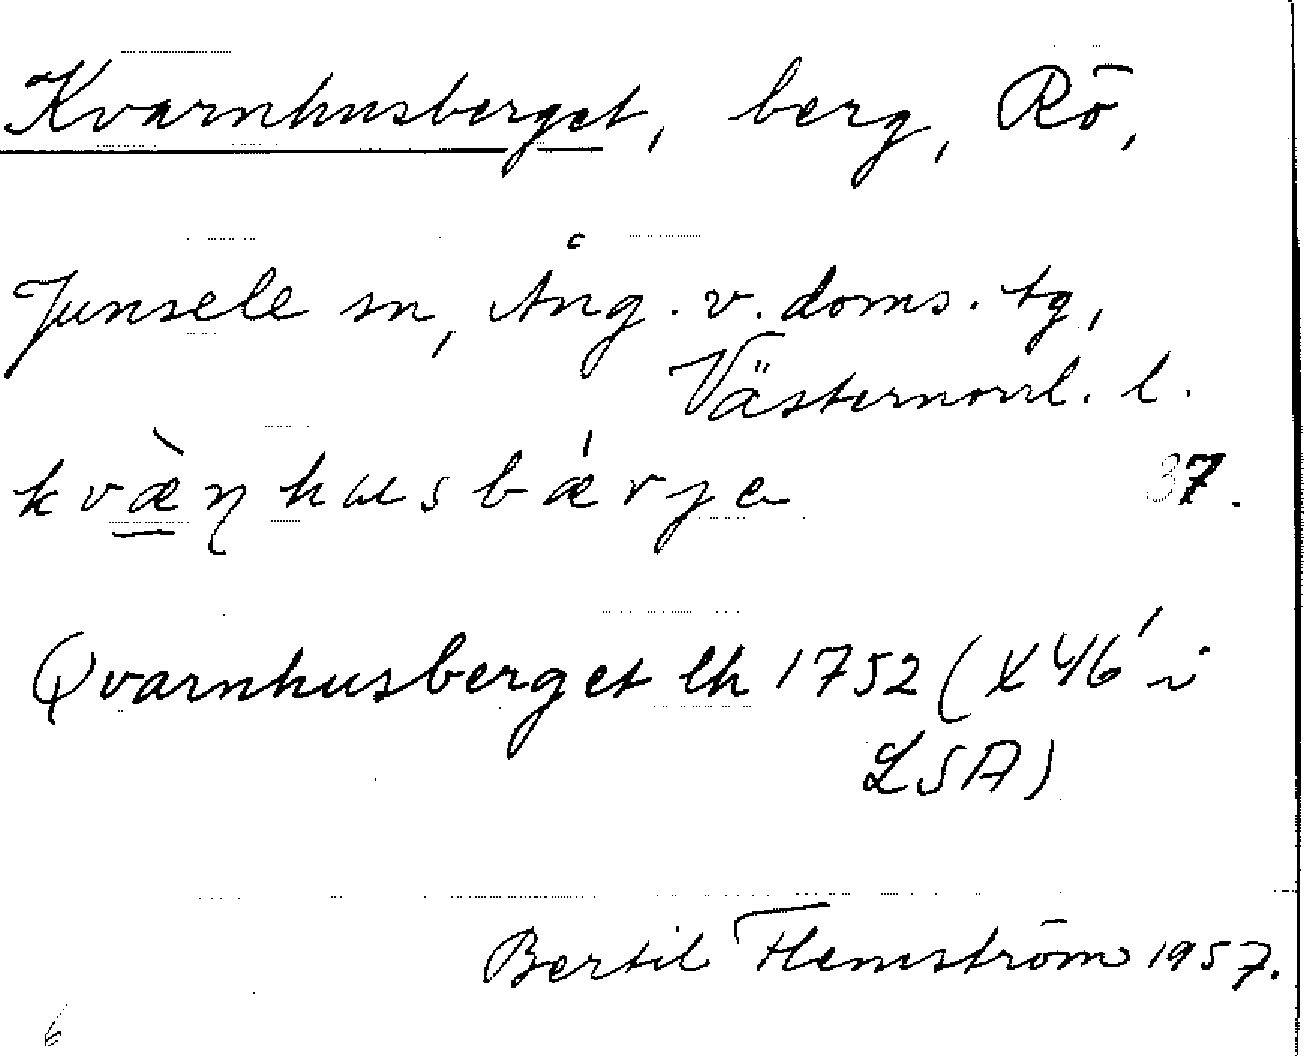 Kvarnhusberget, berg, Rö,
Junsele sn, Ång. v. doms. tg,
Västernorrl. l.
kvæ̀ɳhusbǽrje 37.
Qvarnhusberget lh 1752 (X 46' i
LSA)
Bertil Flemström 1957.
6